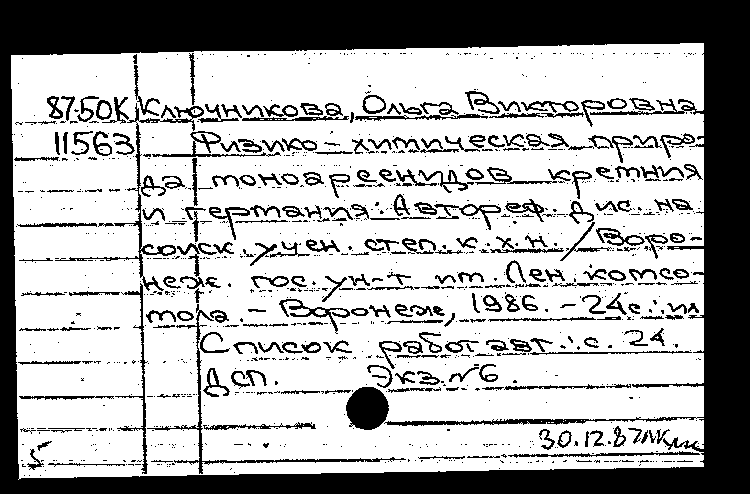 87-50К Ключникова, Ольга Викторовна
11563 Физико-химическая приро-
да моноарсенидов кремния
и германия: Автореф. дис. на
соиск. учен. степ. к.х.н. / Воро-
неж. гос. ун-т им. Лен. комсо-
мола. - Воронеж, 1986. - 24с.: ил
Список работ авт.: с. 24.
ДСП. Экз. №6.
30.12.87
5